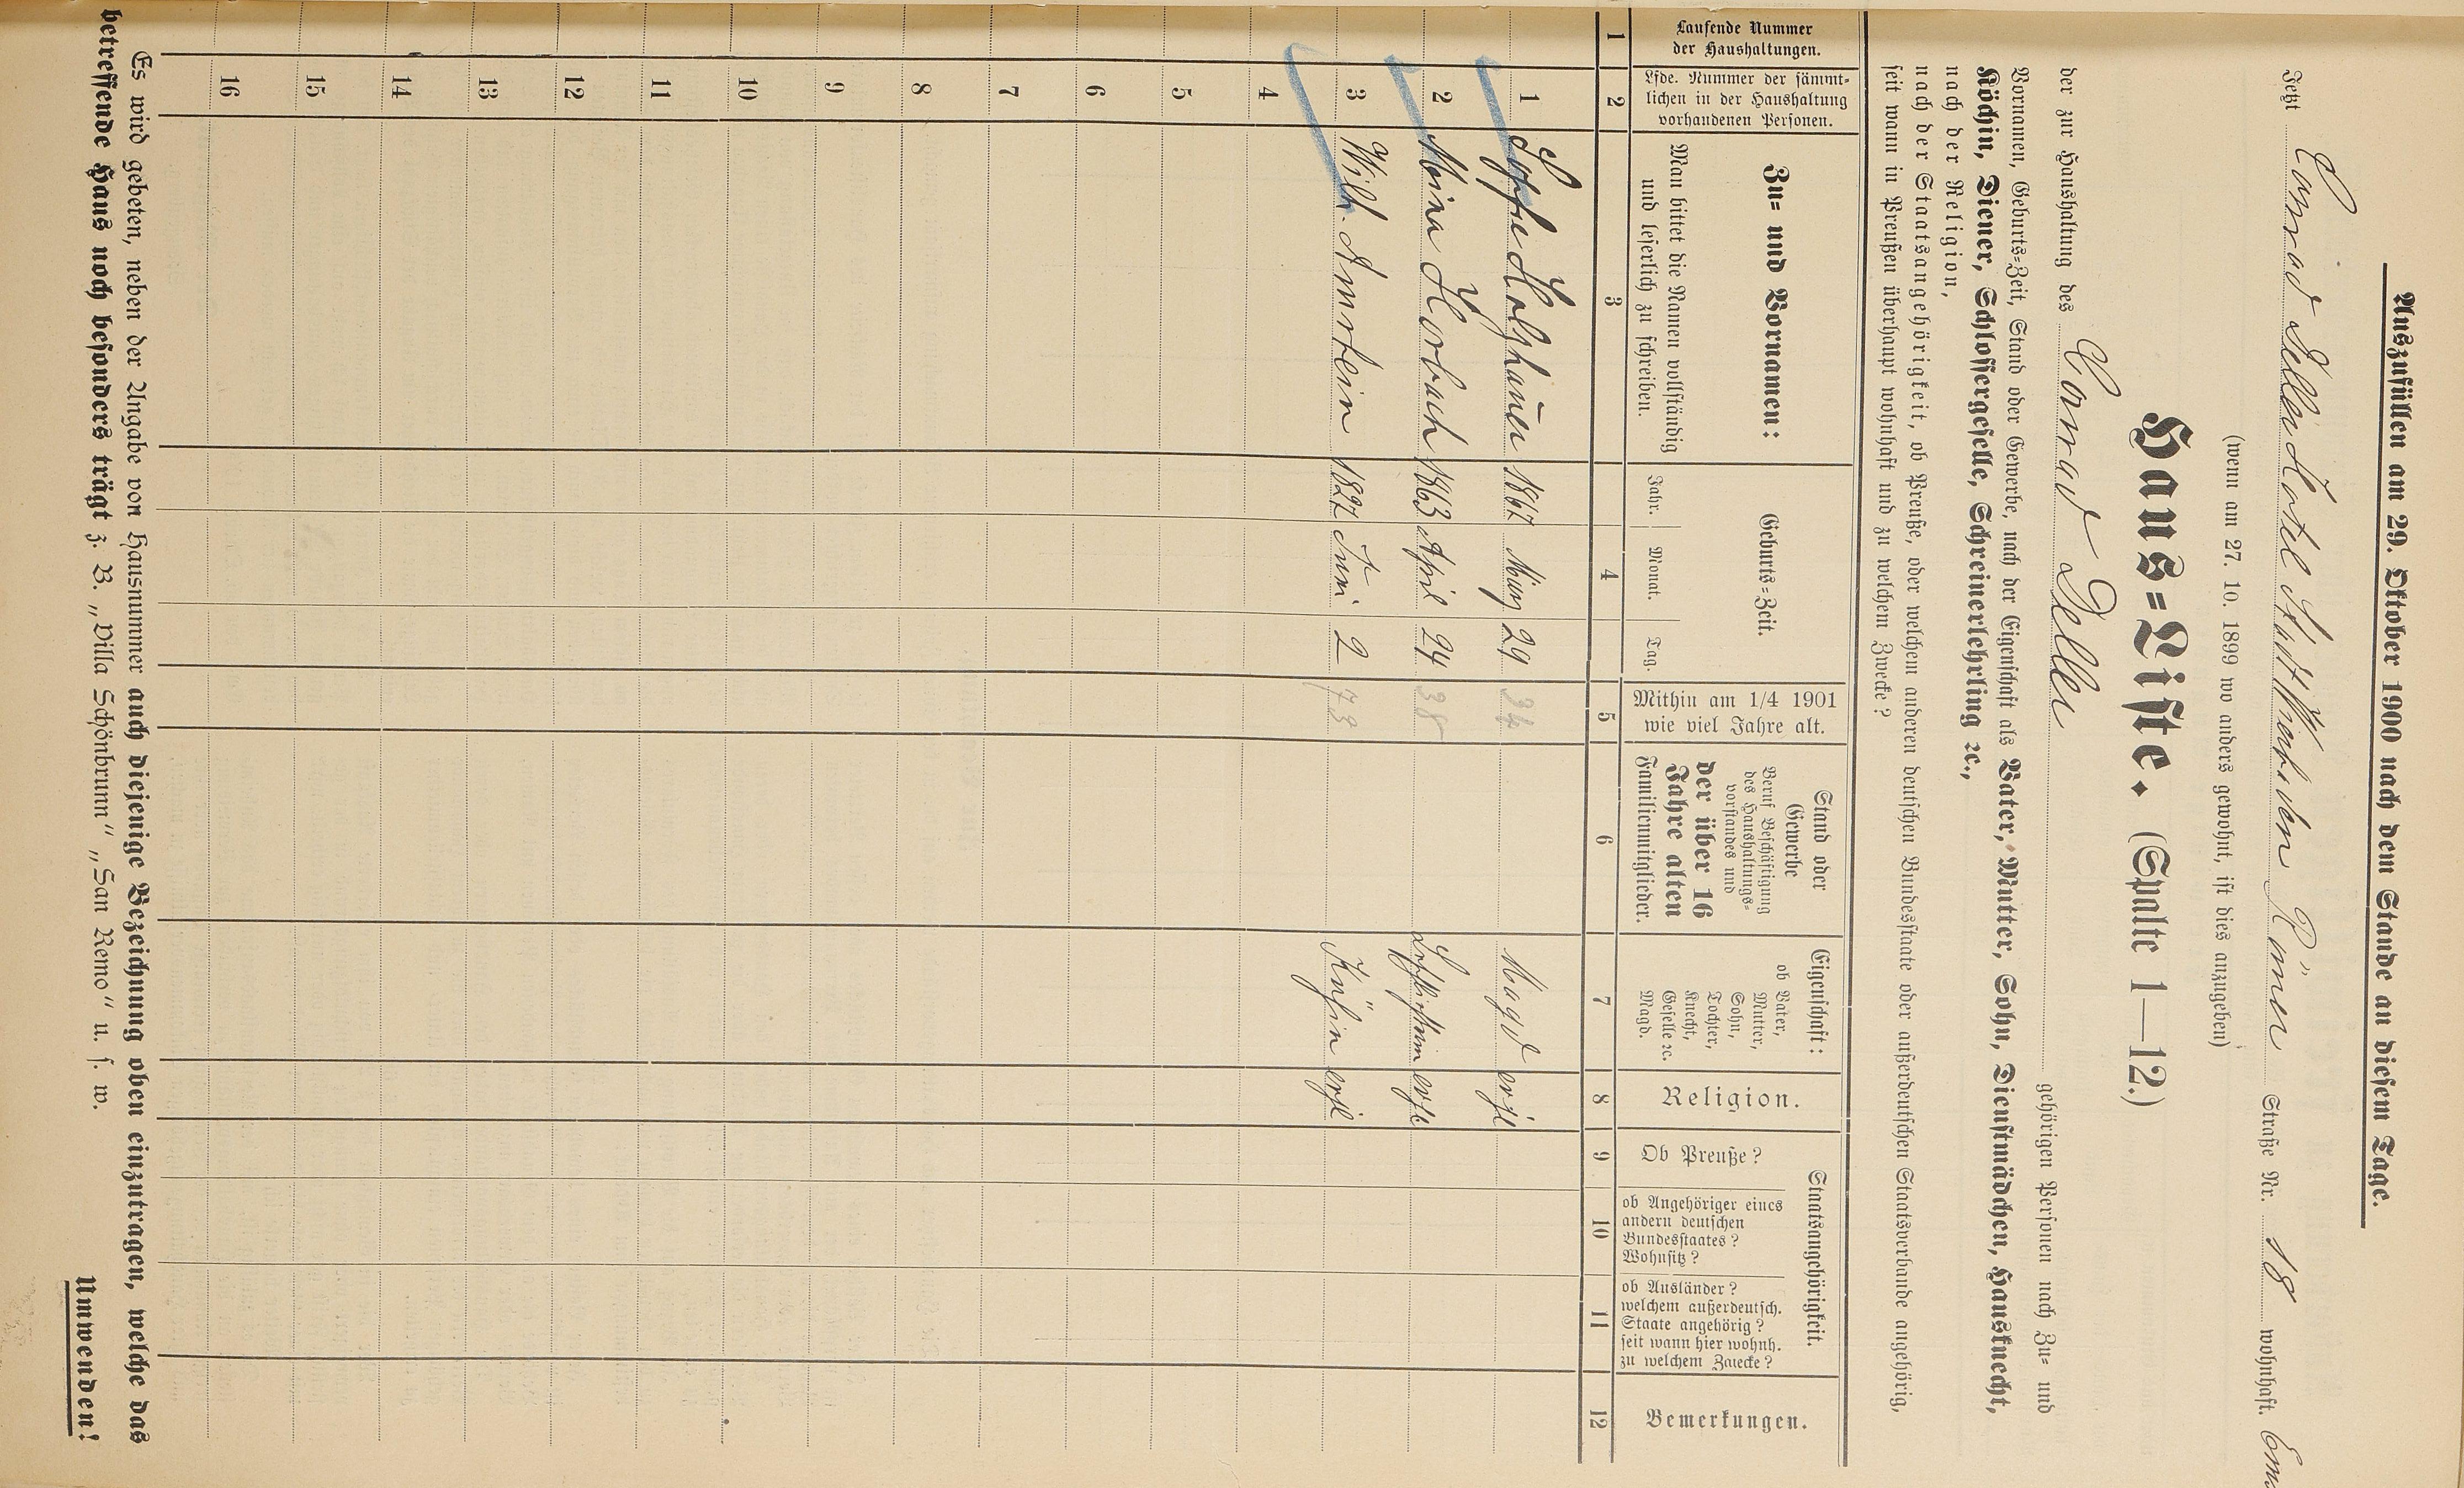 Auszufüllen am 29. Oktober 1900 nach dem Stande an diesem Tage.
Jetzt Conrad Deller Hotel Straße Nr. 18 wohnhaft.
(wenn am 27. 10. 1899 wo anders gewohnt, ist dies anzugeben)
Haus-Liste. (Spalte 1—12.)
der zur Haushaltung des Conrad Deller gehörigen Personen nach Zu- und
Vornamen, Geburts-Zeit, Stand oder Gewerbe, nach der Eigenschaft als Vater, Mutter, Sohn, Dienstmädchen, Hausknecht,
Köchin, Diener, Schlossergeselle, Schreinerlehrling ꝛc.,
nach der Religion,
nach der Staatsangehörigkeit, ob Preuße, oder welchem anderen deutschen Bundesstaate oder außerdeutschen Staatsverbande angehörig,
seit wann in Preußen überhaupt wohnhaft und zu welchem Zwecke?
Laufende Nummer
der Haushaltungen.
Lfde. Nummer der sämmt-
lichen in der Haushaltung
vorhandenen Personen.
Zu- und Vornamen:
Man bittet die Namen vollständig
und leserlich zu schreiben.
Geburts-Zeit.
Jahr. Monat. Tag.
Mithin am 1/4 1901
wie viel Jahre alt.
Stand oder
Gewerbe
Beruf Beschäftigung
des Haushaltungs-
vorstandes und
der über 16
Jahre alten
Familienmitglieder.
Eigenschaft:
ob Vater,
Mutter,
Sohn,
Tochter,
Knecht,
Geselle ꝛc.
Magd.
Religion.
Staatsangehörigkeit.
Ob Preuße?
ob Angehöriger eines
andern deutschen
Bundesstaates?
Wohnsitz?
ob Ausländer?
welchem außerdeutsch.
Staate angehörig?
seit wann hier wohnh.
zu welchem Zwecke?
Bemerkungen.
1 2 3 4 5 6 7 8 9 10 11 12
1 Sophie Holzhäuer 1867 März 29 34 Magd
2 Mina Horbach 1863 April 24 38
3 Wilh. 1827 Juni 2 73 Köchin
4
5
6
7
8
9
10
11
12
13
14
15
16
Es wird gebeten, neben der Angabe von Hausnummer auch diejenige Bezeichnung oben einzutragen, welche das
betreffende Haus noch besonders trägt z. B. „Villa Schönbrunn“ „San Remo“ u. s. w.
Umwenden!